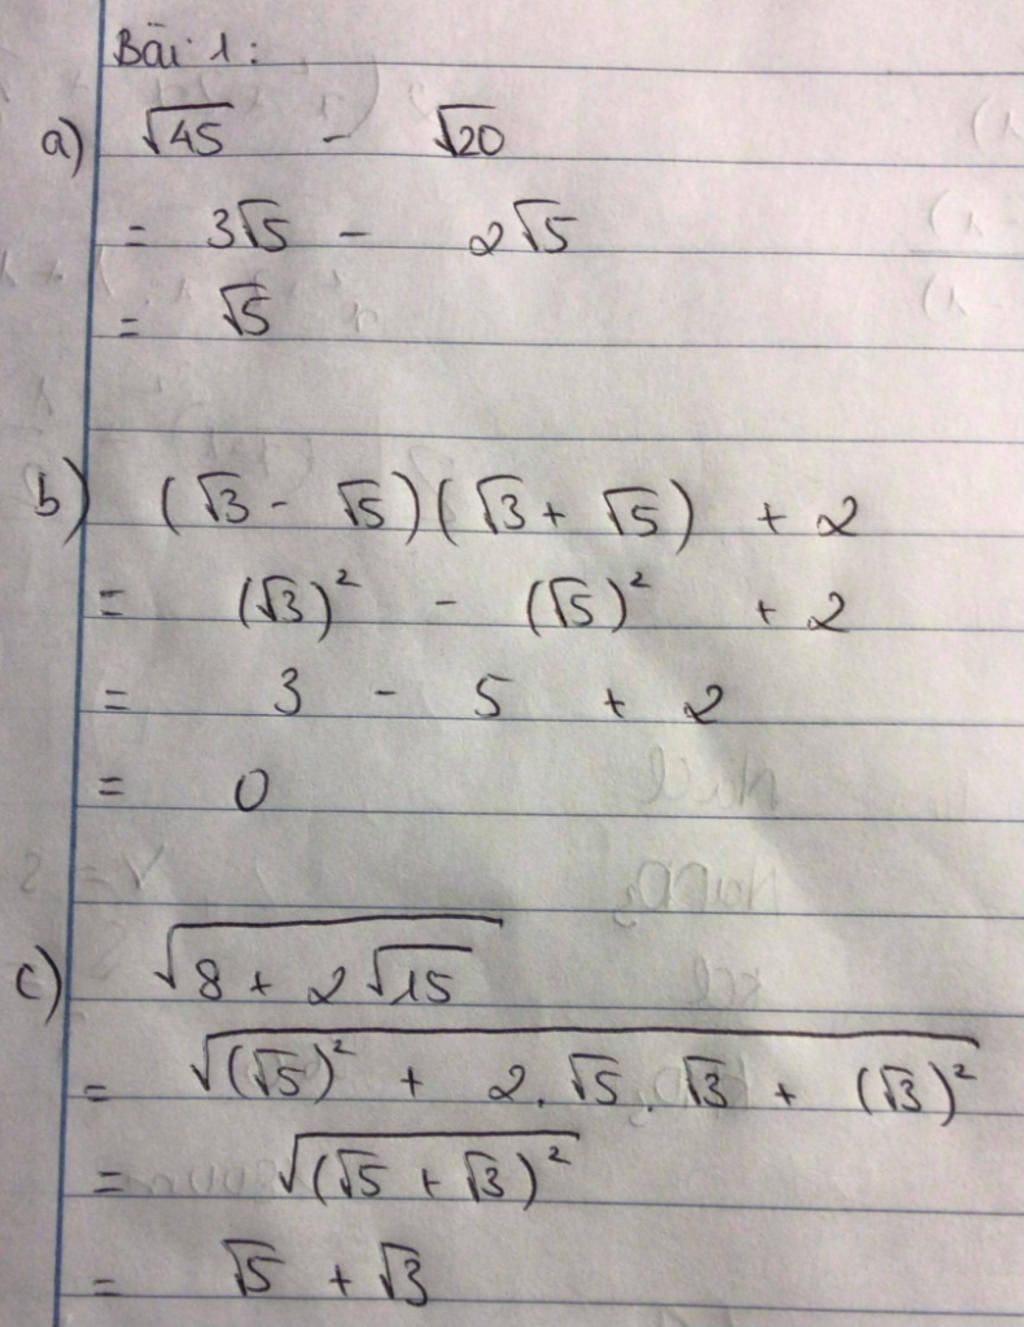 Bài 1:
a) √45 - √20
= 3√5 - 2√5
= √5
b) (√3 - √5)(√3 + √5) + 2
= (√3)² - (√5)² + 2
= 3 - 5 + 2
= 0
c) √(8 + 2√15)
= √((√5)² + 2.√5.√3 + (√3)²)
= √((√5 + √3)²)
= √5 + √3